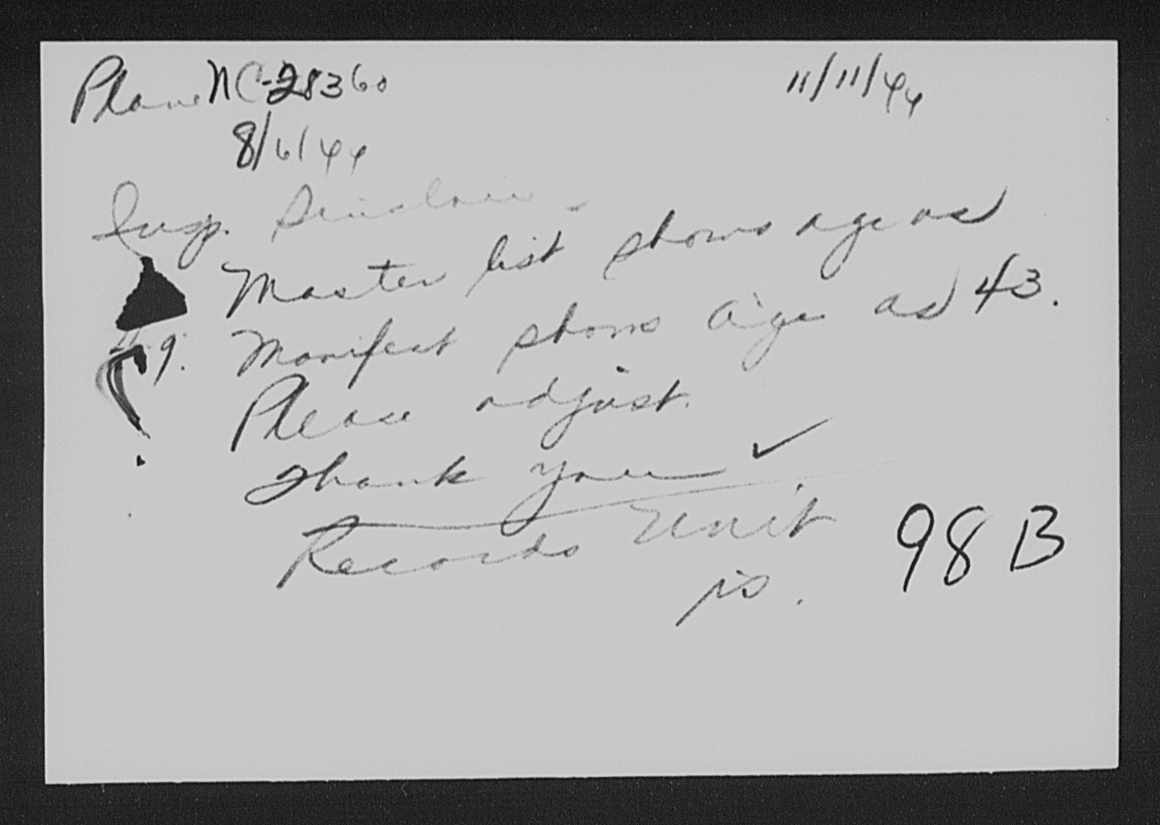 Plane NC-28360 11/11/44
8/6/44
Insp. Sinclair -
Master list shows age as
49. Manifest shows age as 43.
Please adjust.
Thank you ✓
Records Unit
98B